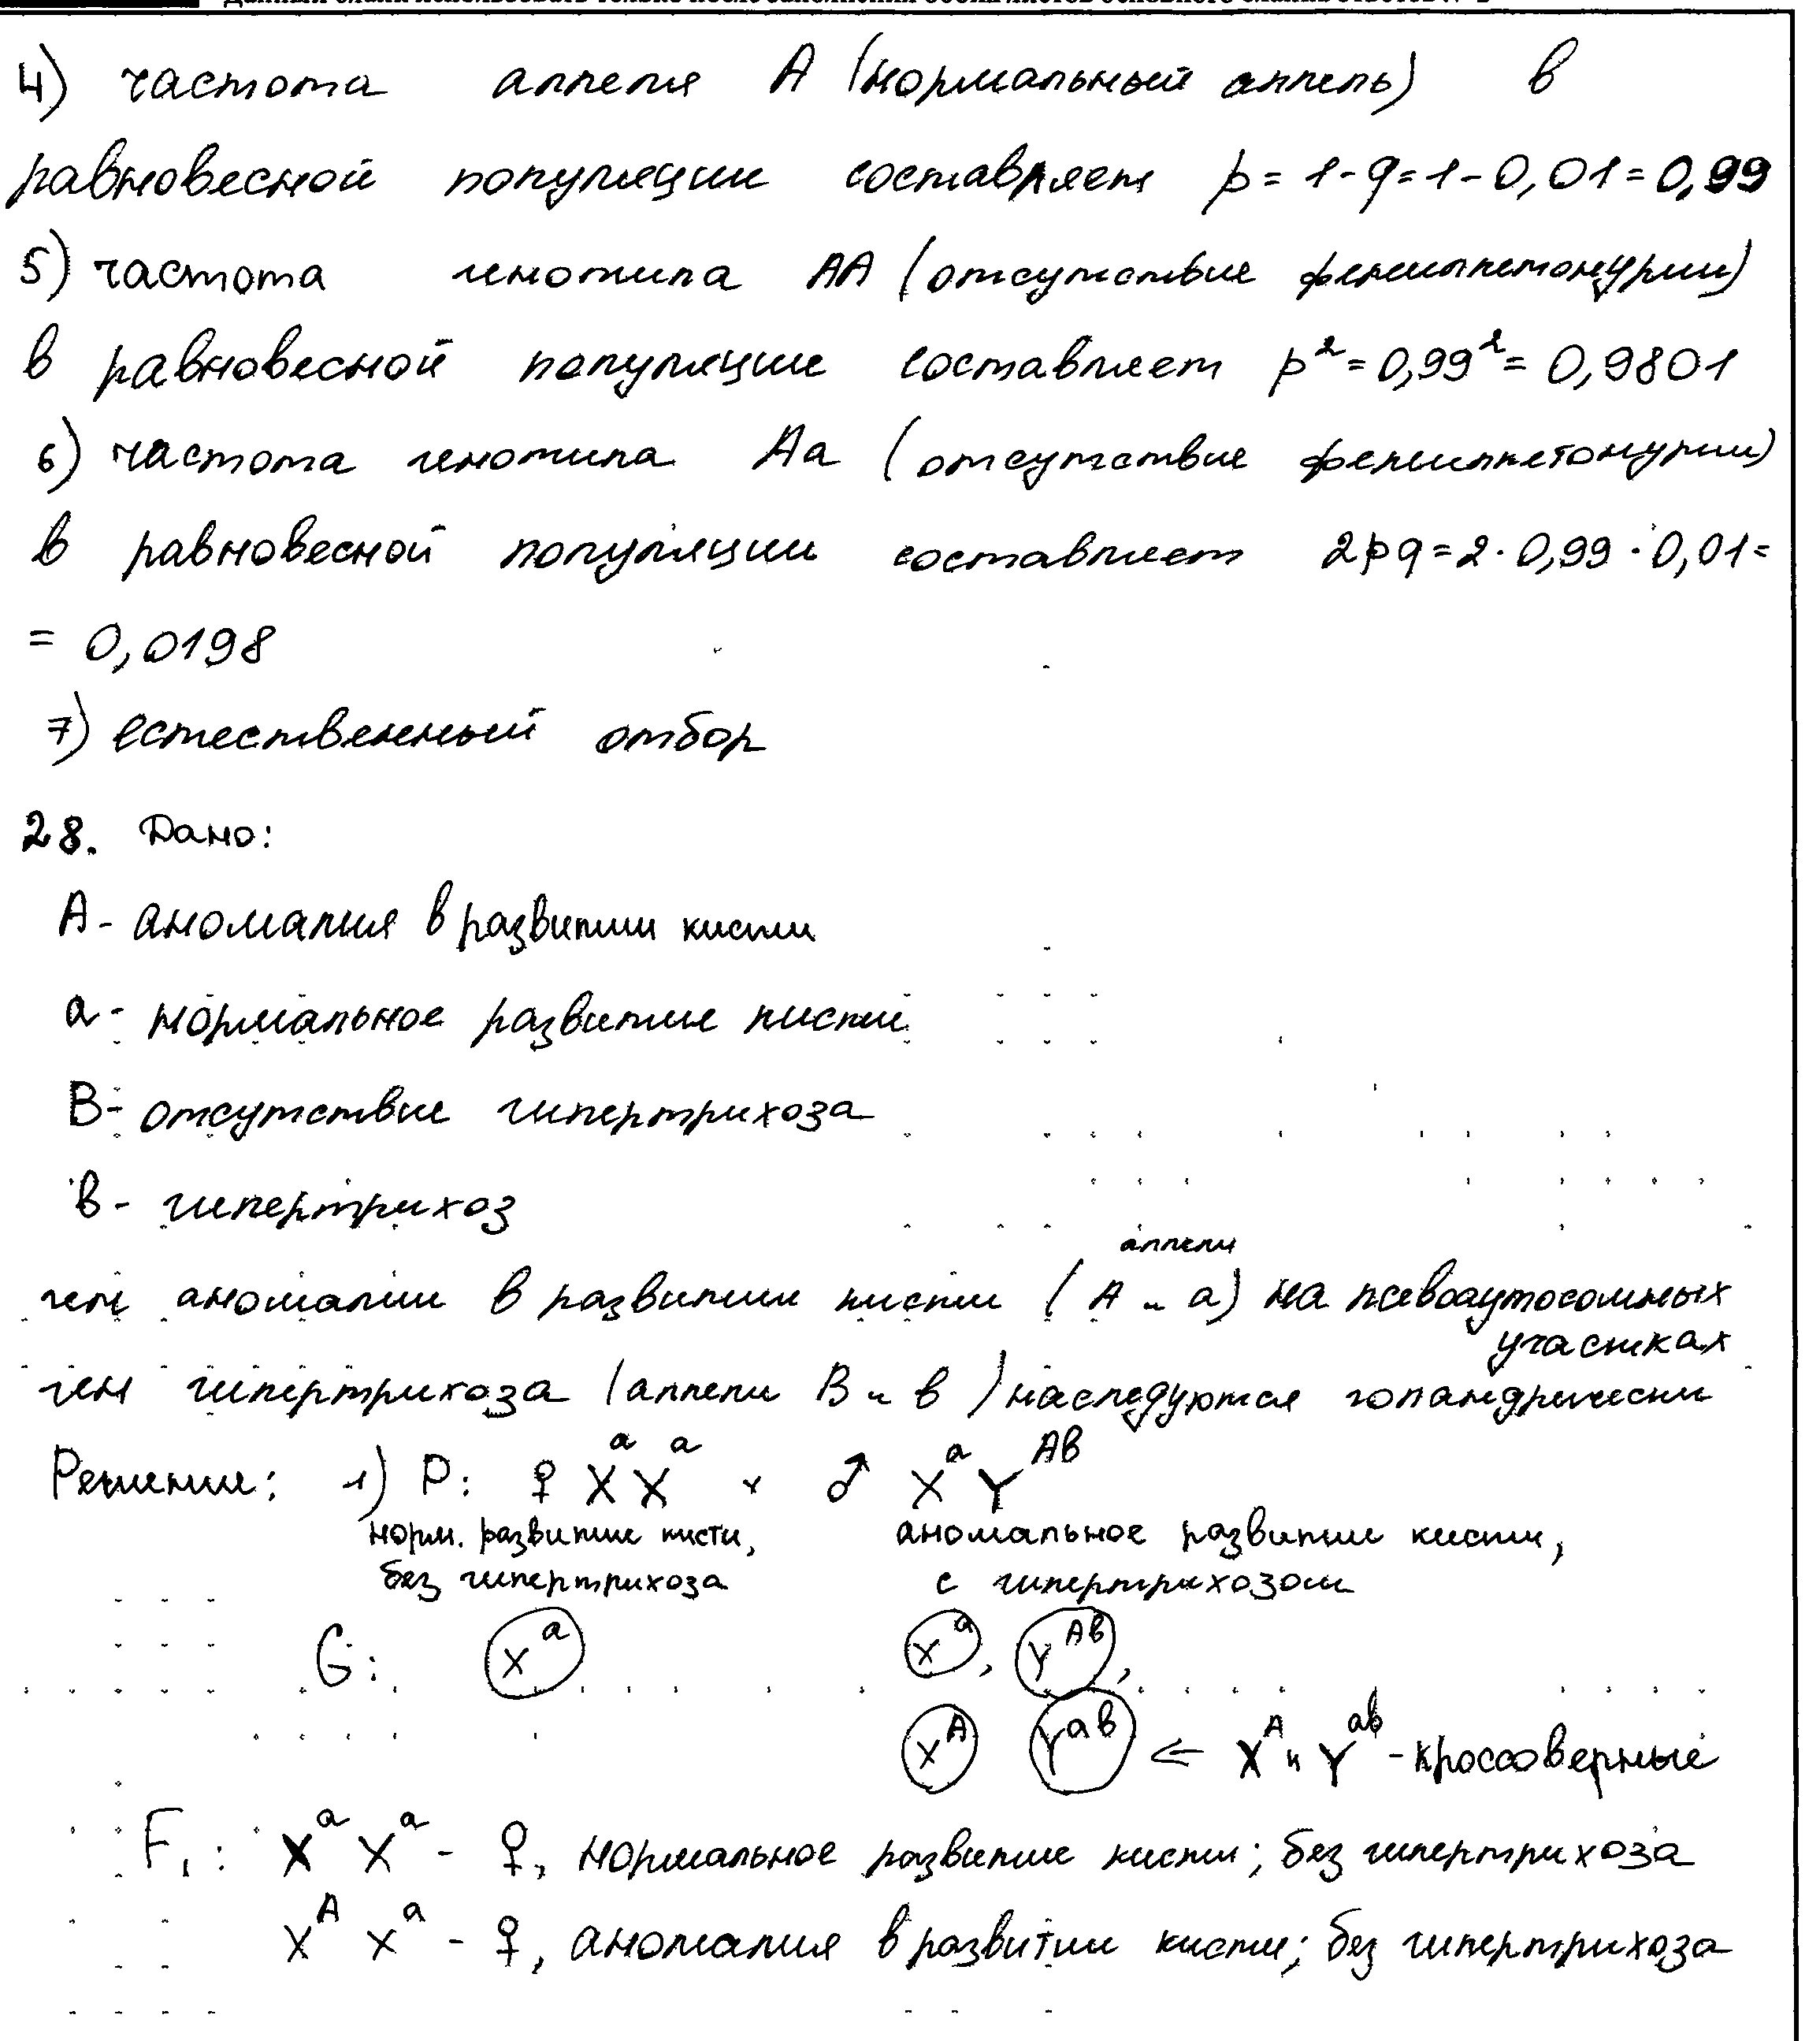 4) частота аллеля А (нормальный аллель) в
равновесной популяции составляет p = 1 - q = 1 - 0,01 = 0,99
5) частота генотипа АА (отсутствие фенилкетонурии)
в равновесной популяции составляет p² = 0,99² = 0,9801
6) частота генотипа Аа (отсутствие фенилкетонурии)
в равновесной популяции составляет 2pq = 2 · 0,99 · 0,01 =
= 0,0198
7) естественный отбор
28. Дано:
А - аномалия в развитии кисти
а - нормальное развитие кисти
В - отсутствие гипертрихоза
в - гипертрихоз
аллели
ген аномалии в развитии кисти ( А и а) на псевоаутосомных
участках
ген гипертрихоза (аллели В и в ) наследуются голандрически
Решение: 1) Р: ♀ XᵃXᵃ × ♂ XᵃYᴬᵇ
норм. развитие кисти, аномальное развитие кисти,
без гипертрихоза с гипертрихозом
G: Xᵃ Xᵃ, Yᴬᵇ,
Xᴬ Yᵃᵇ ⇐ Xᴬ и Yᵃᵇ - кроссоверные
F₁: XᵃXᵃ - ♀, нормальное развитие кисти; без гипертрихоза
XᴬXᵃ - ♀, аномалия в развитии кисти; без гипертрихоза